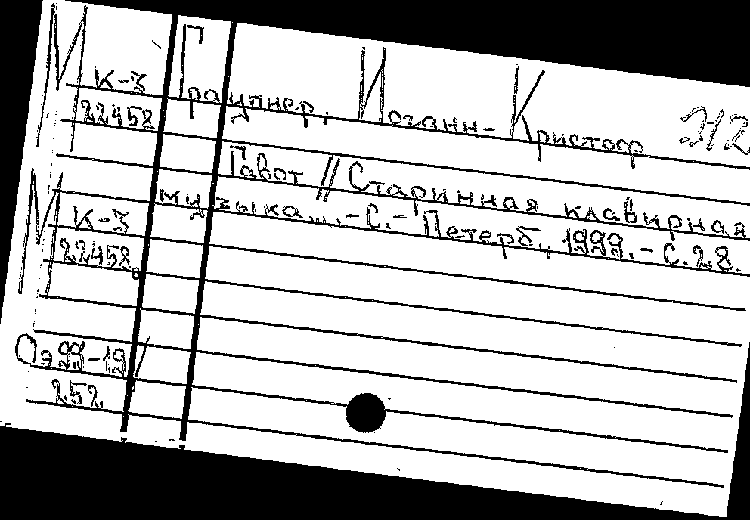 М К-3 Граупнер, Иоганн-Кристоф
22452
Гавот // Старинная клавирная
М К-3 музыка...-С.-Петерб., 1999.-С.28.
22452
Оэ 99-19/
252